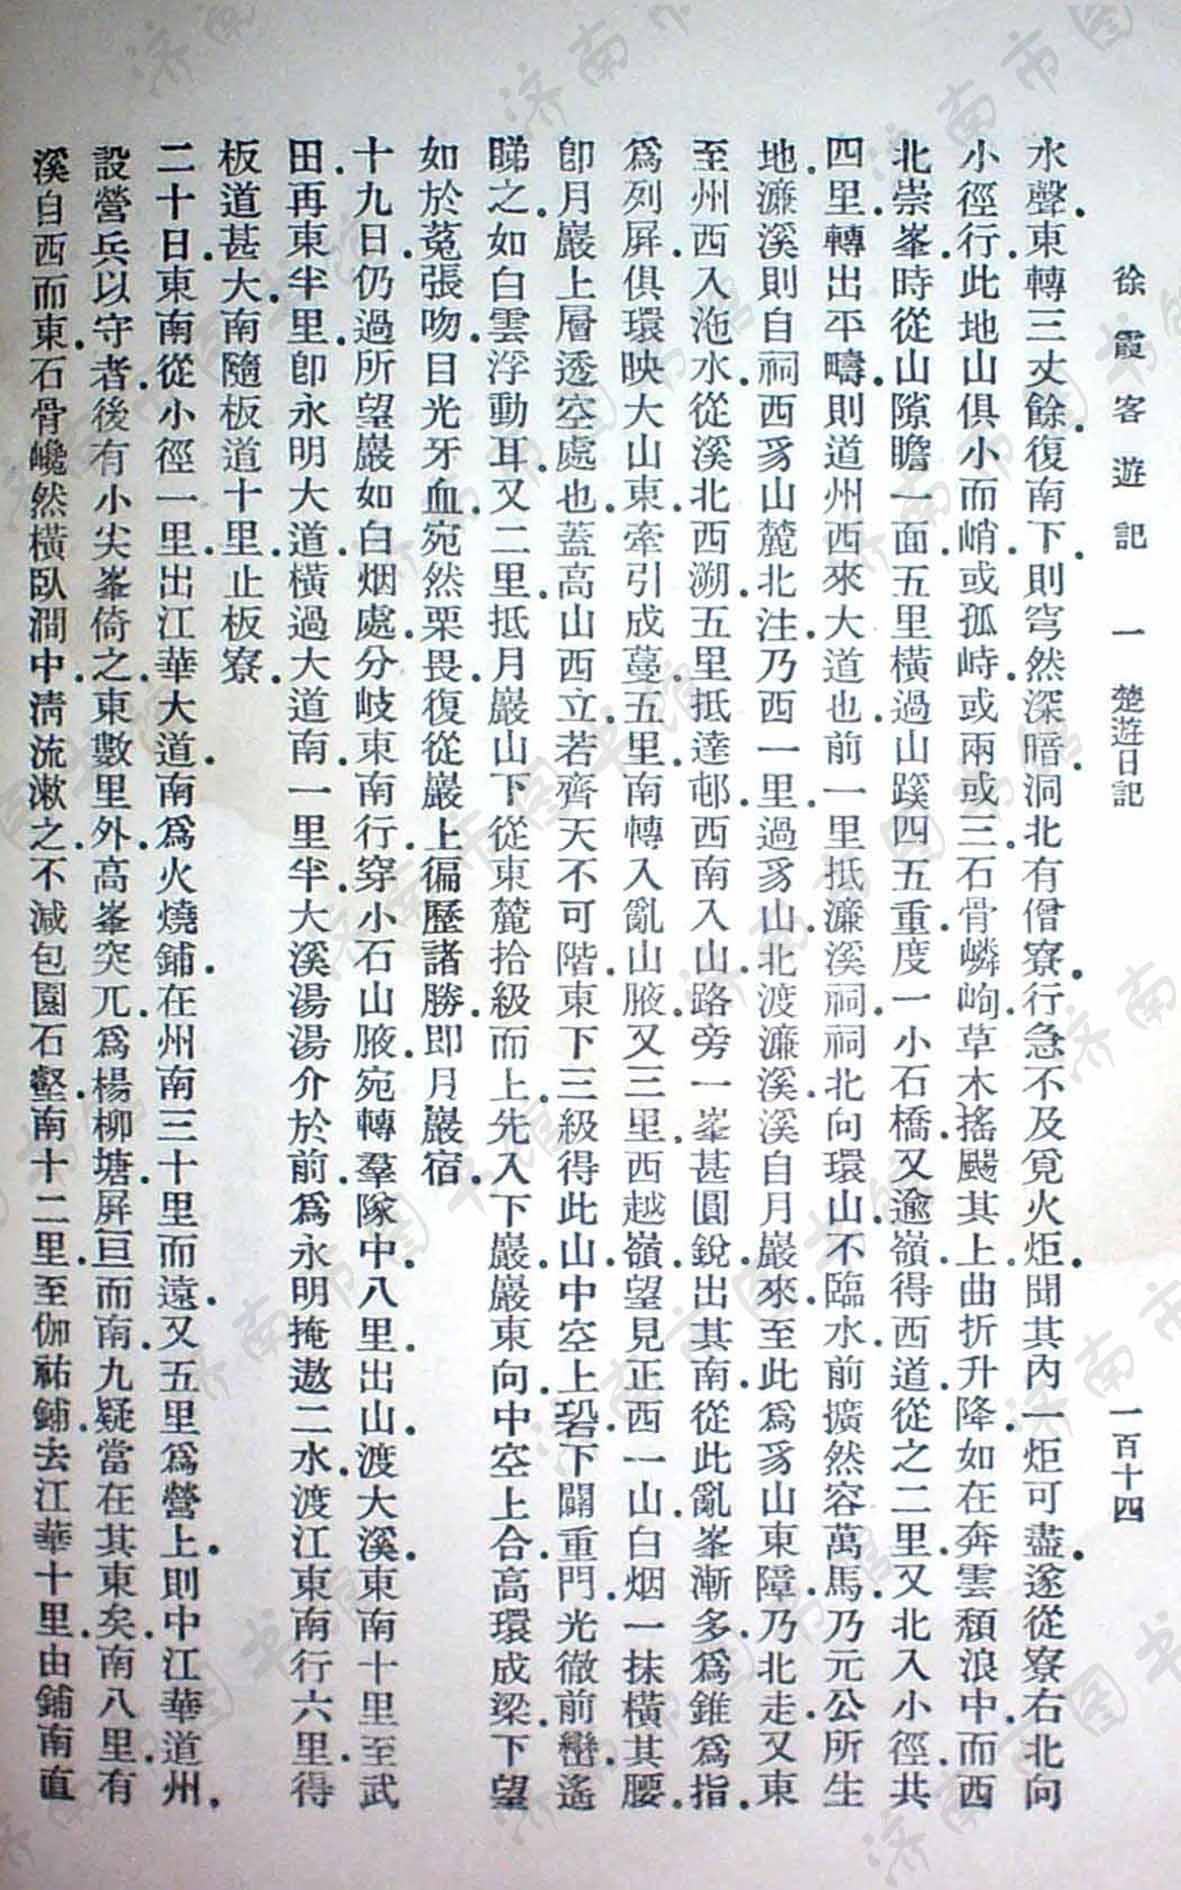 徐霞客遊記 一 楚遊日記 一百十四
水聲東轉三丈餘復南下則穹然深暗洞北有僧寮行急不及覓火炬聞其內一炬可盡遂從寮右北向
小徑行此地山俱小而峭或孤峙或兩或三石骨嶙峋草木搖颺其上曲折升降如在奔雲頹浪中而西
北崇峯時從山隙瞻一面五里橫過山蹊四五重度一小石橋又逾嶺得西道從之二里又北入小徑共
四里轉出平疇則道州西來大道也前一里抵濂溪祠祠北向環山不臨水前擴然容萬馬乃元公所生
地濂溪則自祠西豸山麓北注乃西一里過豸山北渡濂溪溪自月巖來至此為豸山東障乃北走又東
至州西入沲水從溪北西溯五里抵達邨西南入山路旁一峯甚圓銳出其南從此亂峯漸多為錐為指
為列屏俱環映大山東牽引成蔓五里南轉入亂山腋又三里西越嶺望見正西一山白烟一抹橫其腰
卽月巖上層透空處也蓋高山西立若齊天不可階東下三級得此山中空上硲下闢重門光徹前巒遙
睇之如白雲浮動耳又二里抵月巖山下從東麓拾級而上先入下巖巖東向中空上合高環成梁下望
如於菟張吻目光牙血宛然栗畏復從巖上徧歷諸勝即月巖宿
十九日仍過所望巖如白烟處分岐東南行穿小石山腋宛轉羣隊中八里出山渡大溪東南十里至武
田再東半里卽永明大道橫過大道南一里半大溪湯湯介於前為永明掩遨二水渡江東南行六里得
板道甚大南隨板道十里止板寮
二十日東南從小徑一里出江華大道南為火燒鋪在州南三十里而遠又五里為營上則中江華道州
設營兵以守者後有小尖峯倚之東數里外高峯突兀為楊柳塘屏亘而南九疑當在其東矣南八里有
溪自西而東石骨巉然橫臥澗中清流漱之不減包園石壑南十二里至伽祐鋪去江華十里由鋪南直